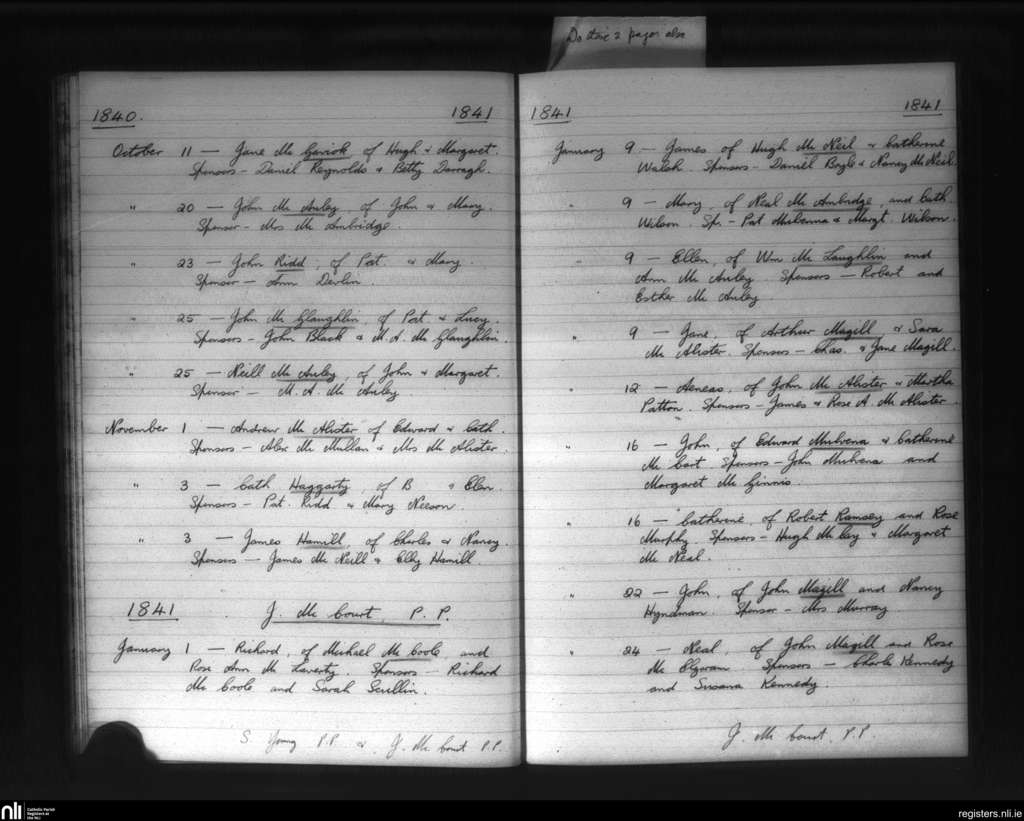 Do these 2 pages also
1840.
1841
October 11 — Jane Mc Gavick of Hugh & Margaret.
Sponsors - Daniel Reynolds & Betty Darragh.
" 20 — John Mc Auley of John & Mary.
Sponsor - Mrs Mc Ambridge.
" 23 — John Ridd, of Pat. & Mary.
Sponsor - Ann Devlin.
" 25 — John Mc Glaughlin, of Pat & Lucy.
Sponsors - John Black & M. A. Mc Glaughlin.
" 25 — Neill Mc Auley, of John & Margaret.
Sponsor - M. A. Mc Auley.
November 1 — Andrew Mc Alister of Edward & Cath.
Sponsors - Alex Mc Mullan & Mrs Mc Alister.
" 3 — Cath Haggarty, of B & Ellen.
Sponsors - Pat. Ridd & Mary Neeson.
" 3 — James Hamill, of Charles & Nancy.
Sponsors - James Mc Neill & Elley Hamill.
1841 J. Mc Court, P. P.
January 1 — Richard, of Michael Mc Coole and
Rose Ann Mc Laverty. Sponsors - Richard
Mc Coole and Sarah Scullin.
S. Young P.P. & J. Mc Court P.P.
1841
1841
January 9 — James of Hugh Mc Neil & Catherine
Walsh. Sponsors - Daniel Boyle & Nancy Mc Neil.
" 9 — Mary, of Neal Mc Ambridge, and Cath.
Wilson. Sp. - Pat Mulvenna & Margt. Wilson.
" 9 — Ellen, of Wm Mc Laughlin and
Ann Mc Auley. Sponsors - Robert and
Esther Mc Auley.
" 9 — Jane, of Arthur Magill, & Sara
Mc Alister. Sponsors - Chas. & Jane Magill.
" 12 — Aeneas, of John Mc Alister & Martha
Patton. Sponsors - James & Rose A. Mc Alister.
" 16 — John, of Edward Mulvena & Catherine
Mc Cart. Sponsors - John Mulvena and
Margaret Mc Ginnis.
" 16 — Catherine, of Robert Ramsey and Rose
Murphy. Sponsors - Hugh Mc Cay & Margaret
Mc Neal.
" 22 — John, of John Magill and Nancy
Hyndman. Sponsor - Mrs Murray.
" 24 — Neal, of John Magill and Rose
Mc Elgwan. Sponsors - Charls Kennedy
and Susana Kennedy.
J. Mc Court, P.P.
nli Catholic Parish Registers at the NLI
registers.nli.ie